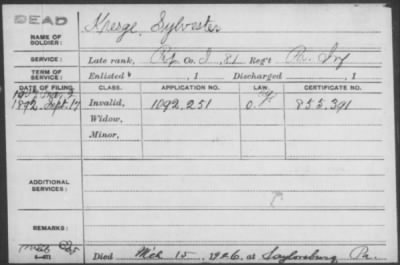 DEAD
NAME OF SOLDIER: Kresge, Sylvester
SERVICE: Late rank, Pvt Co. I, 81 Reg't Pa. Inf
TERM OF SERVICE: Enlisted , 1 Discharged , 1
DATE OF FILING. CLASS. APPLICATION NO. LAW. CERTIFICATE NO.
1892. Sept. 17 Invalid, 1092.251 855.391
Widow,
Minor,
ADDITIONAL SERVICES:
REMARKS:
Died Mch 15, 1926, at Saylorsburg Pa.